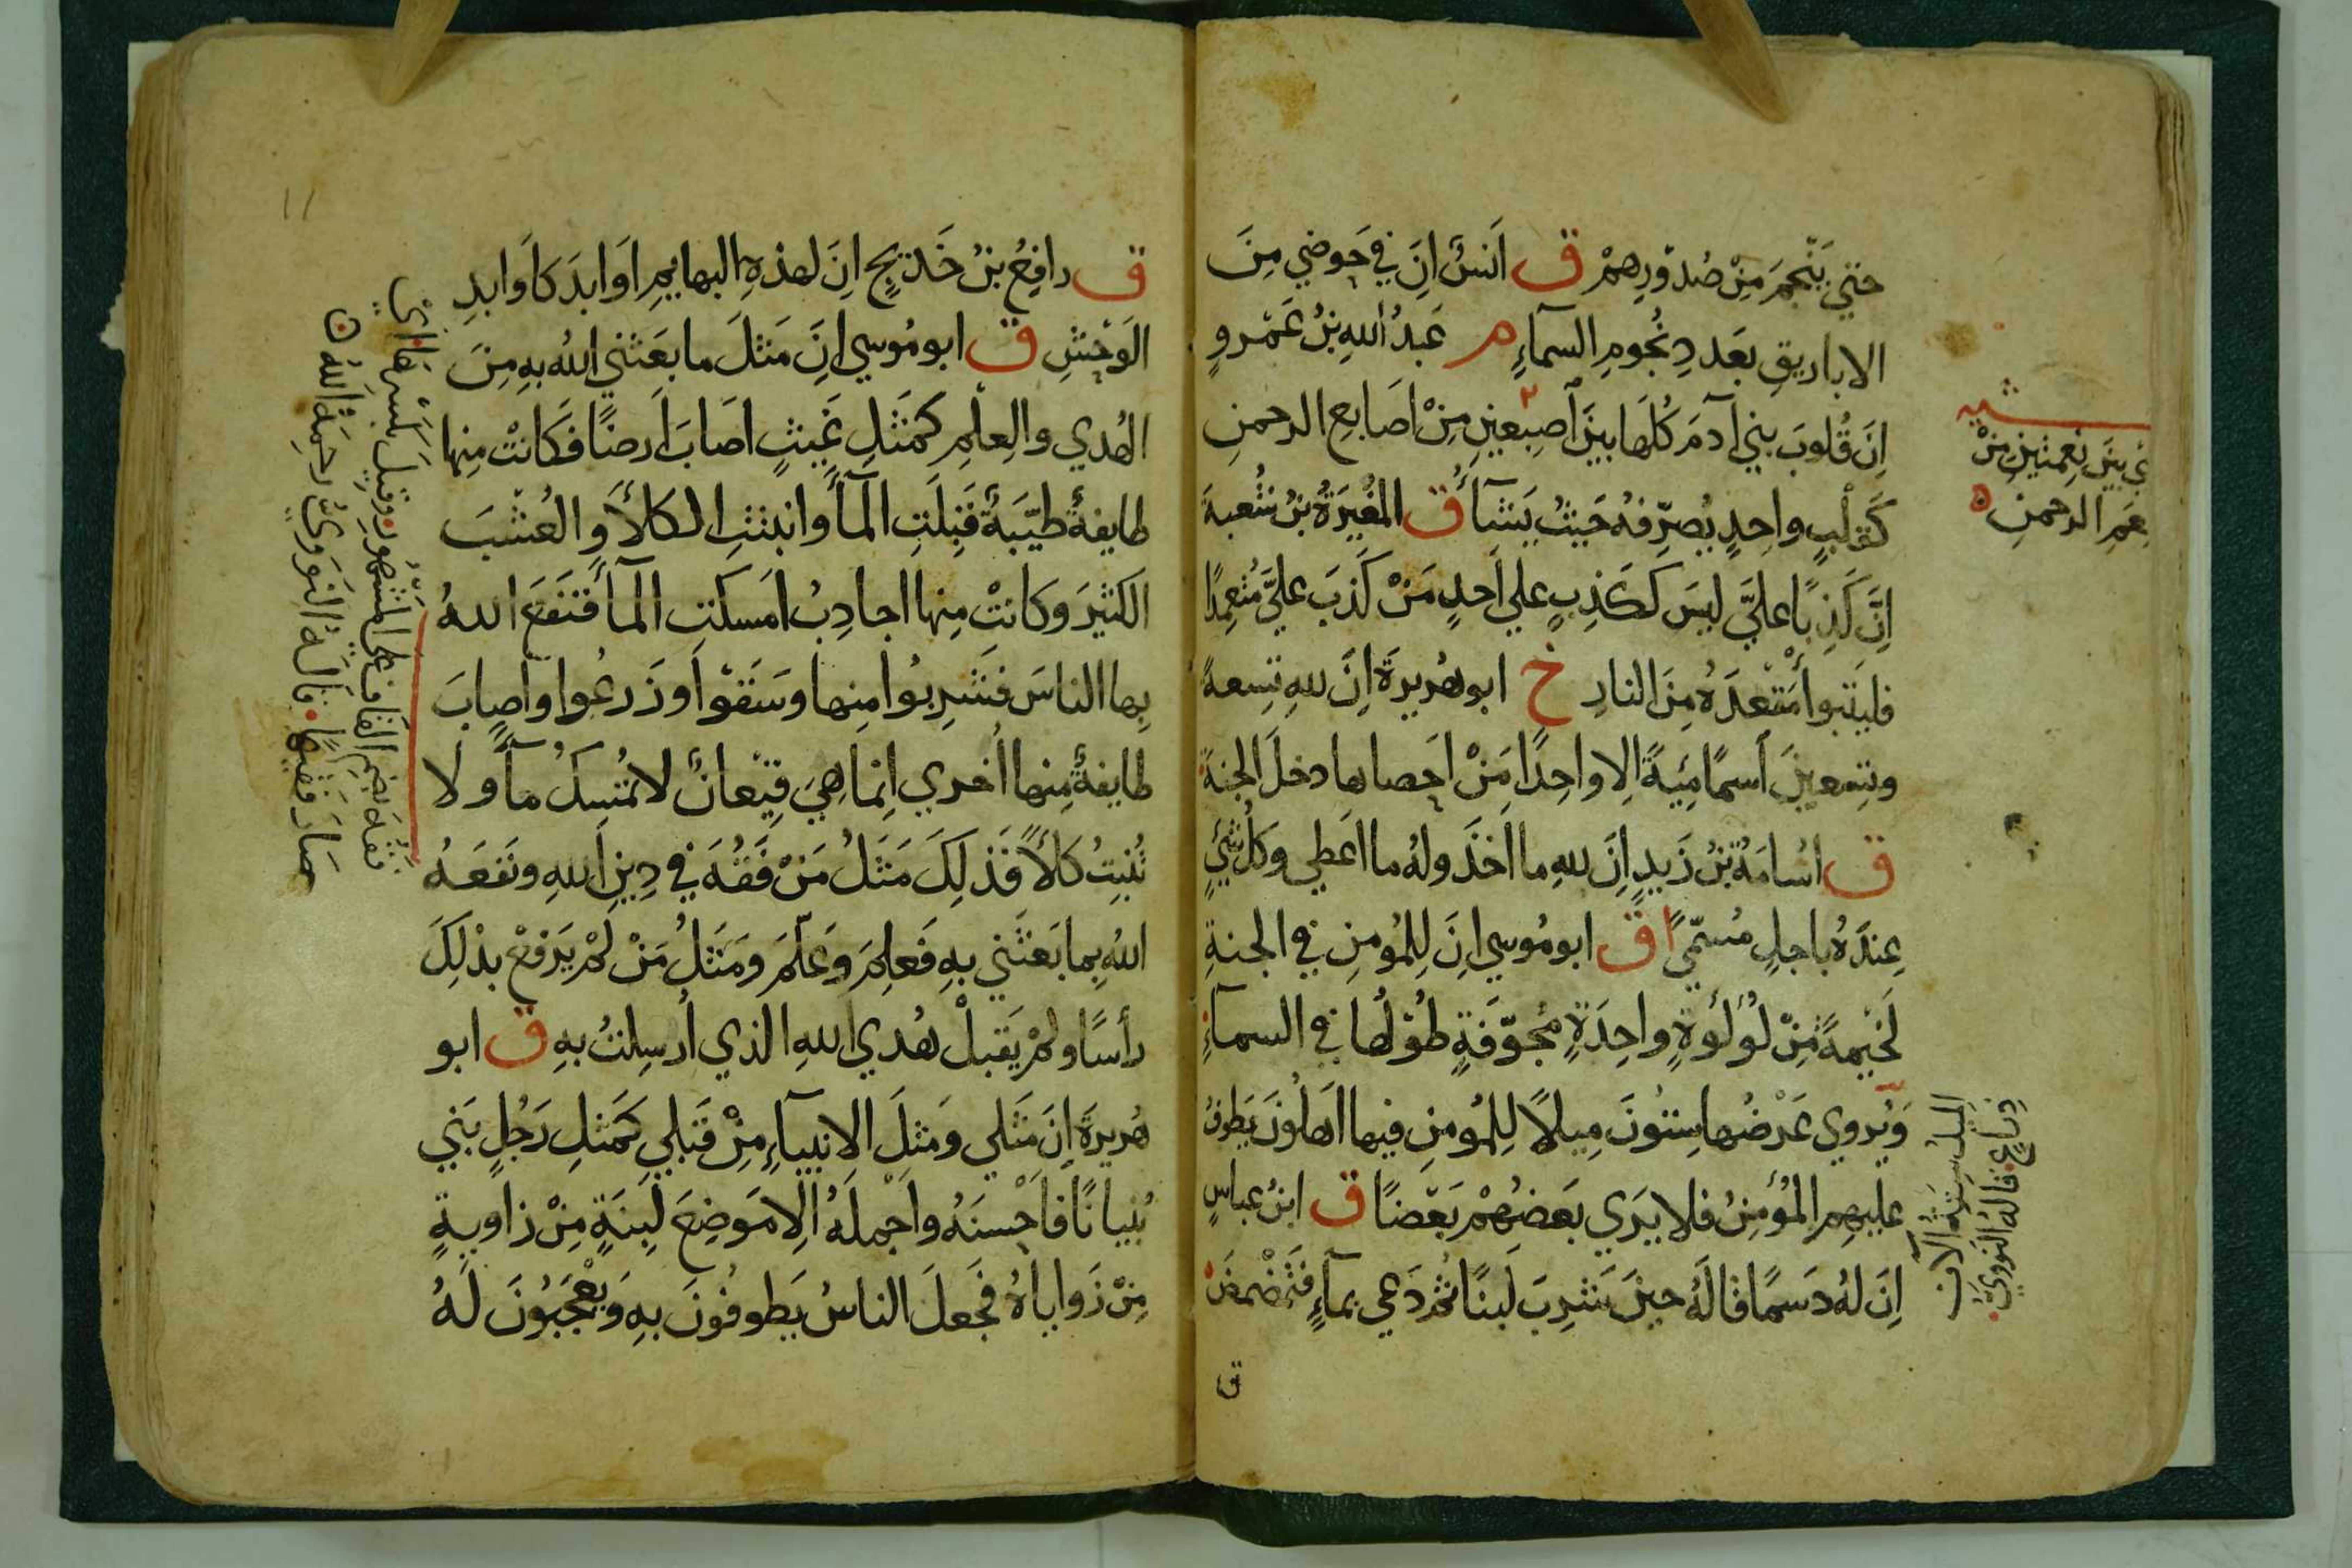 حتي ينجم من صدورهم ق انس ان في حوضي من
الاباريق بعدد نجوم السماء م عبد الله بن عمرو
ان قلوب بني آدم كلها بين اصبعين من اصابع الرحمن
كقلب واحد يصرفه حيث يشآء ق المغيرة بن شعبة
ان كذبا علي ليس ككذب علي احد من كذب علي متعمدا
فليتبوأ مقعده من النار خ ابو هريرة ان لله تسعة
وتسعين اسما مئية الا واحدا من احصاها دخل الجنة
ق اسامة بن زيد ان لله ما اخذ وله ما اعطي وكل شئ
عنده باجل مسمي ق ابو موسي ان للمومن في الجنة
لخيمة من لؤلؤة واحدة مجوفة طولها في السمآء
ويروي عرضها ستون ميلا للمومن فيها اهلون يطوف
عليهم المؤمن فلا يري بعضهم بعضا ق ابن عباس
ان له دسما قاله حين شرب لبنا ثم دعي بمآء فتمضمض
ق
بين نعمتين من
نعم الرحمن
الميل ستة الآف
ذراع قاله النووي
١١
ق رافع بن خديج ان لهذه البهايم اوابد كاوابد
الوحش ق ابو موسي ان مثل ما بعثني الله به من
الهدي والعلم كمثل غيث اصاب ارضا فكانت منها
طايفة طيبة قبلت المآء وانبتت الكلأ والعشب
الكثير وكانت منها اجادب امسكت المآء فنفع الله
بها الناس فشربوا منها وسقوا وزرعوا واصاب
طايفة منها اخري انما هي قيعان لا تمسك مآء ولا
تنبت كلأ فذلك مثل من فقه في دين الله ونفعه
الله بما بعثني به فعلم وعلم ومثل من لم يرفع بذلك
رأسا ولم يقبل هدي الله الذي ارسلت به ق ابو
هريرة ان مثلي ومثل الانبيآء من قبلي كمثل رجل بني
بنيانا فاحسنه واجمله الا موضع لبنة من زاوية
من زواياه فجعل الناس يطوفون به ويعجبون له
فقه بضم القاف علي المشهور وقيل بكسرها اي
صار فقيها قاله النووي رحمه الله